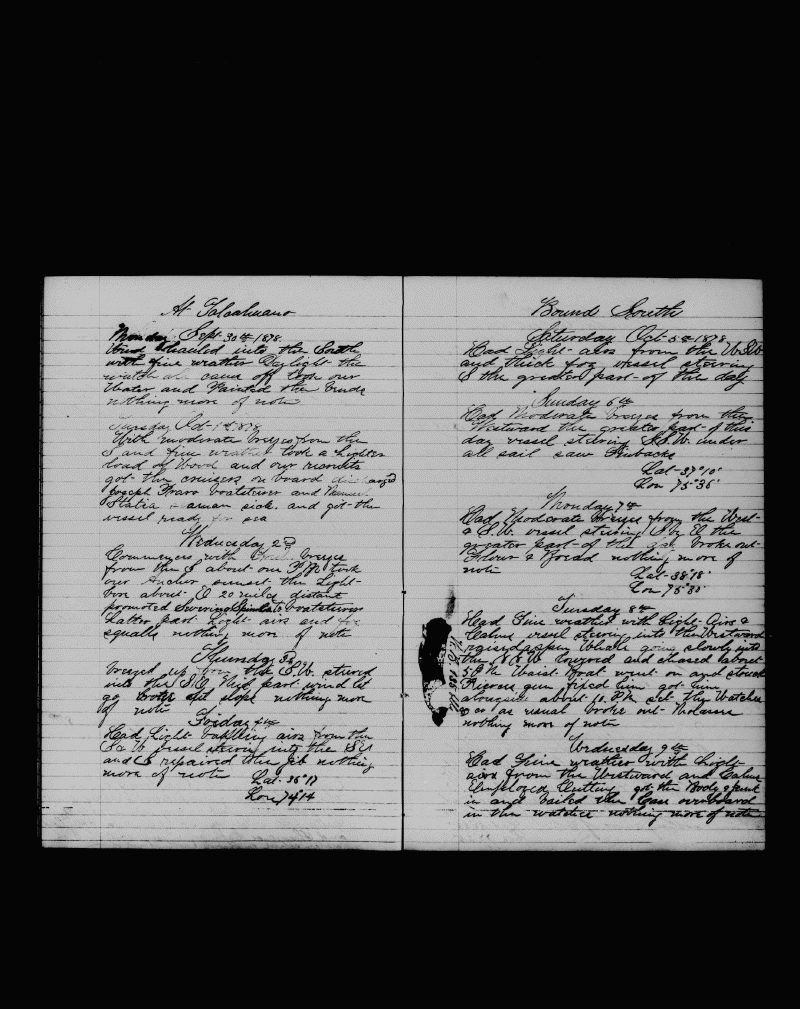 At Talcahuano
Monday Sept 30th 1878
Wind hauled into the South
with fine weather Daylight the
watch all came off took our
Water and Painted the
nothing more of note
Tuesday Oct 1st 1878
With moderate breezes from the
S and fine weather took a Lighter
load of Wood and our recruits
got the cruisers on board discharged
Joseph boatsteerer and
a man sick. and got the
vessel ready for sea
Wednesday 2d
Commences with breezes
from the S about one P.M. took
our Anchor sunset the Light
bore about E 20 miles distant
promoted boatsteerer
Latter part Light airs and
squalls nothing more of note
Thursday 3d
breezed up from the S.W. steered
into the Mid part wind let
go nothing more
of note
Friday 4th
Had Light baffling airs from the
S & W vessel steering into the
and repaired the jib nothing
more of note Lat 36°17
Lon 74°14
Bound South
Saturday Oct 5th 1878
Had Light airs from the W.S.W.
and thick fog vessel steering
S the greater part of the day
Sunday 6th
Had Moderate breezes from the
Westward the greater part of this
day vessel steering S.S.W. under
all sail saw Finbacks
Lat 37°10'
Lon 75°36'
Monday 7th
Had Moderate breezes from the West
& S.W. vessel steering S by E the
greater part of the day broke out
Flour & Bread nothing more of
note
Lat 38°18'
Lon 75°30'
Tuesday 8th
Had Fine weather with Light Airs &
Calms vessel steering into the Westward
raised a Sperm Whale going slowly into
the lowered and chased about
5 P.M. Waist Boat went on and struck
gun fixed him got him
alongside about 11 P.M. set the Watches
& as usual broke out Molasses
nothing more of note
Wednesday 9th
Had Fine weather with Light
airs from the Westward and Calms
Employed Cutting got the Body & junk
in and bailed the Case overboard
in the watches nothing more of note